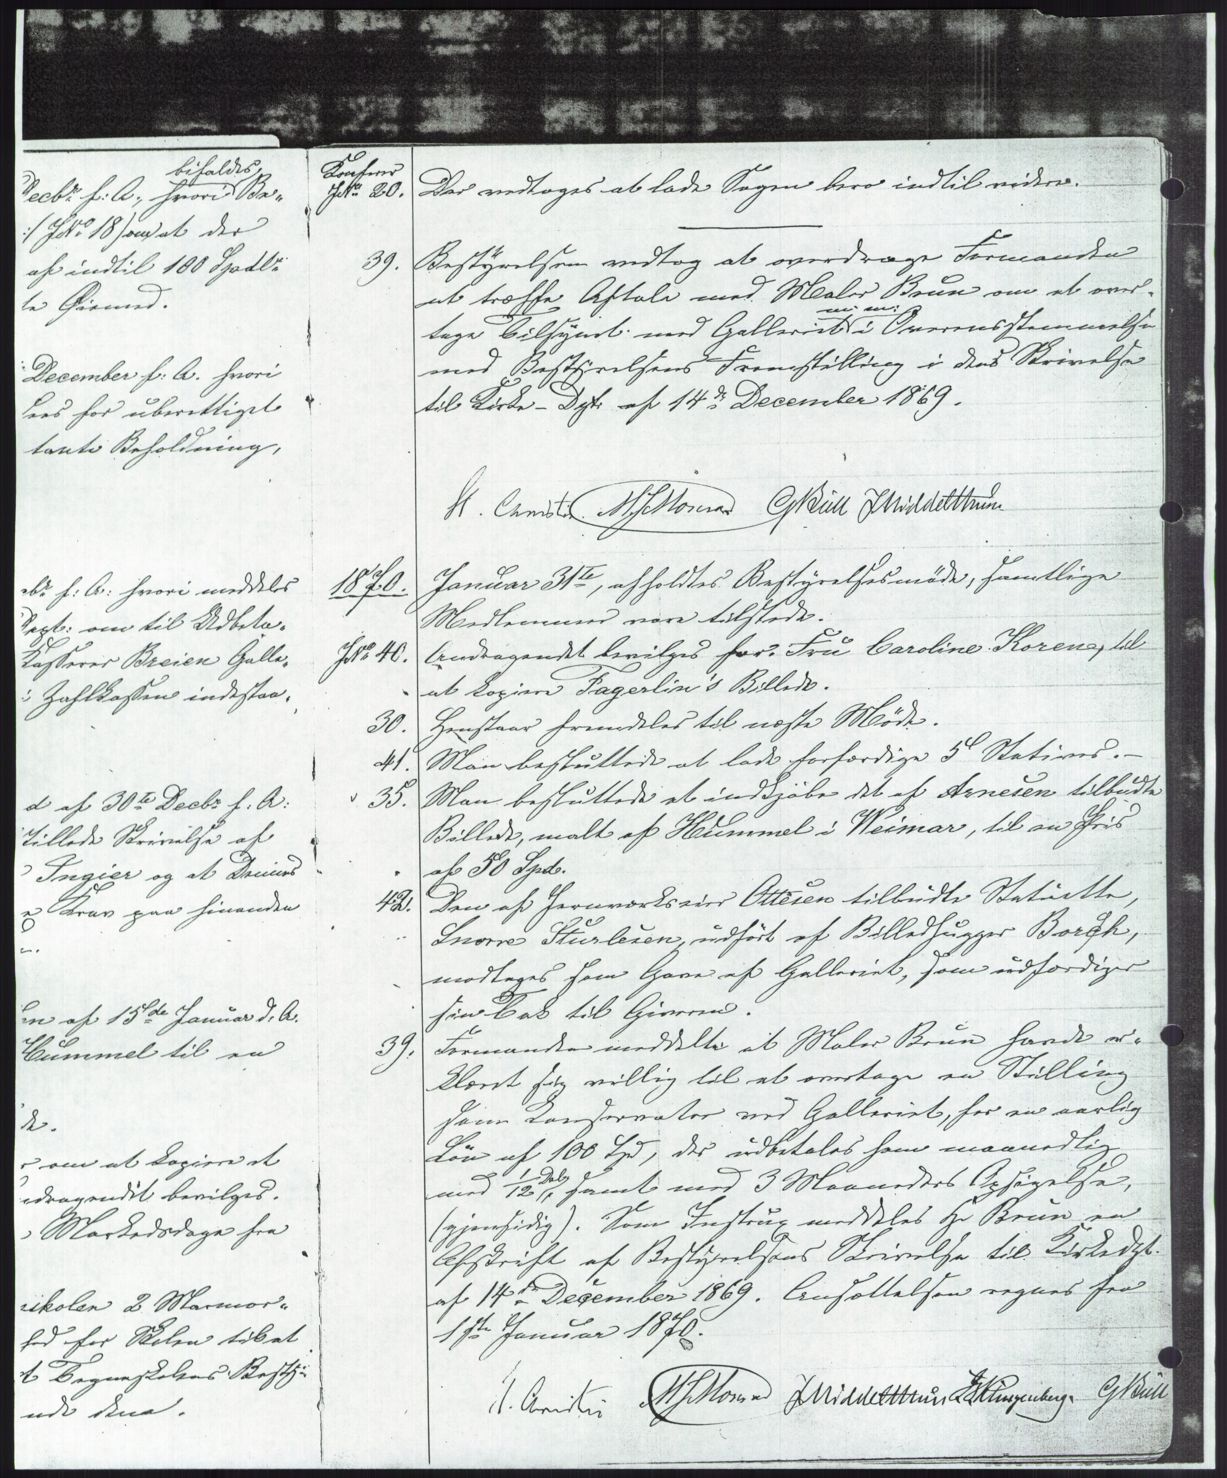 bifaldes,
Decbr f: A:, hvori Be-
:/ JNo 18) om at der
af indtil 100 Spdlr
te Øiemed.
December f: A. hvori
sees for uberettiget
tante Beholdning,
br f: A: hvori meddeles
Dept: om til Udbeta-
Kasserer Breien Galle-
i Zahlkassen indestaa-
d af 30te Decbr f: A:
tillede Skrivelse af
Ingier og at Deres
e Krav paa hinanden
en af 15de Januar d. A.
Hummel til en
de.
r om at kopiere et
ndragendet bevilges.
Markedsdage fra
nikolen 2 Marmor-
hed for Skolen til at
t Tegneskolens Besty-
nde dem.
Konferer
JNo 20. Der vedtoges at lade Sagen bero indtil videre.
39. Bestyrelsen vedtog at overdrage Formanden
at træffe Aftale med Maler Brun om at over-
tage Tilsynet med Galleriet m. m. i Overensstemmelse
med Bestyrelsens Fremstilling i dens Skrivelse
til Kirke-Dpt. af 14de December 1869.
H. Christie MJMonrad GBull JMiddelthun
1870. Januar 31te, afholdtes Bestyrelsesmöde, samtlige
Medlemmer vare tilstede.
JNo 40. Andragendet bevilges for Fru Caroline Koren, til
at kopiere Fagerlin's Billede.
30. Henstaar fremdeles til næste Möde.
41. Man besluttede at lade forfærdige 5 Stativer.-
35. Man besluttede at indkjöbe det af Arnesen tilbudte
Billede, malt af Hummel i Weimar, til en Pris
af 50 Spd.
42. Den af Jernværkseier Ottesen tilbudte Statuette,
Snorre Sturlesen, udfört af Billedhugger Borch,
modtages som Gave af Galleriet, som udfærdiger
sin Tak til Giveren.
39. Formanden meddelte at Maler Brun havde er-
klæret sig villig til at overtage en Stilling
som Konservator ved Galleriet, for en aarlig
Lön af 100 Spd, der udbetales ham maanedlig
med 1/12 Del, samt med 3 Maaneders Opsigelse,
(gjensidig). Som Instrux meddeles Hr Brun en
Afskrift af Bestyrelsens Skrivelse til Kirkedpt.
af 14de December 1869. Ansættelsen regnes fra
1ste Januar 1870.
H. Christie MJMonrad JMiddelthun Klingenberg GBull